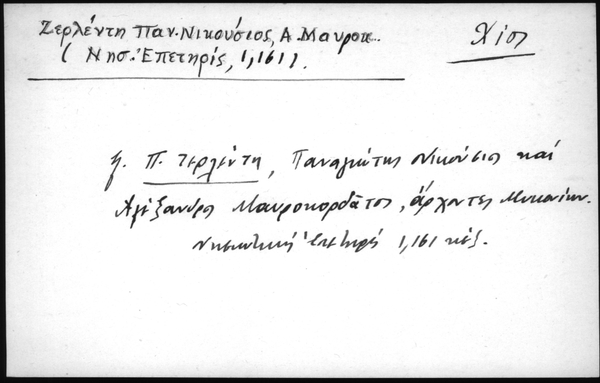 Ζερλέντη Παν. Νικούσιος, Α. Μαυροκ.
Χίος
(Νησ. Ἐπετηρίς, 1, 161).
Π. Ζερλέντη, Παναγιώτης Νικούσιος καί
Ἀλέξανδρος Μαυροκορδᾶτος, ἄρχοντες Μυκονίων.
Νησιωτική Ἐπετηρίς 1, 161 κἑξ.